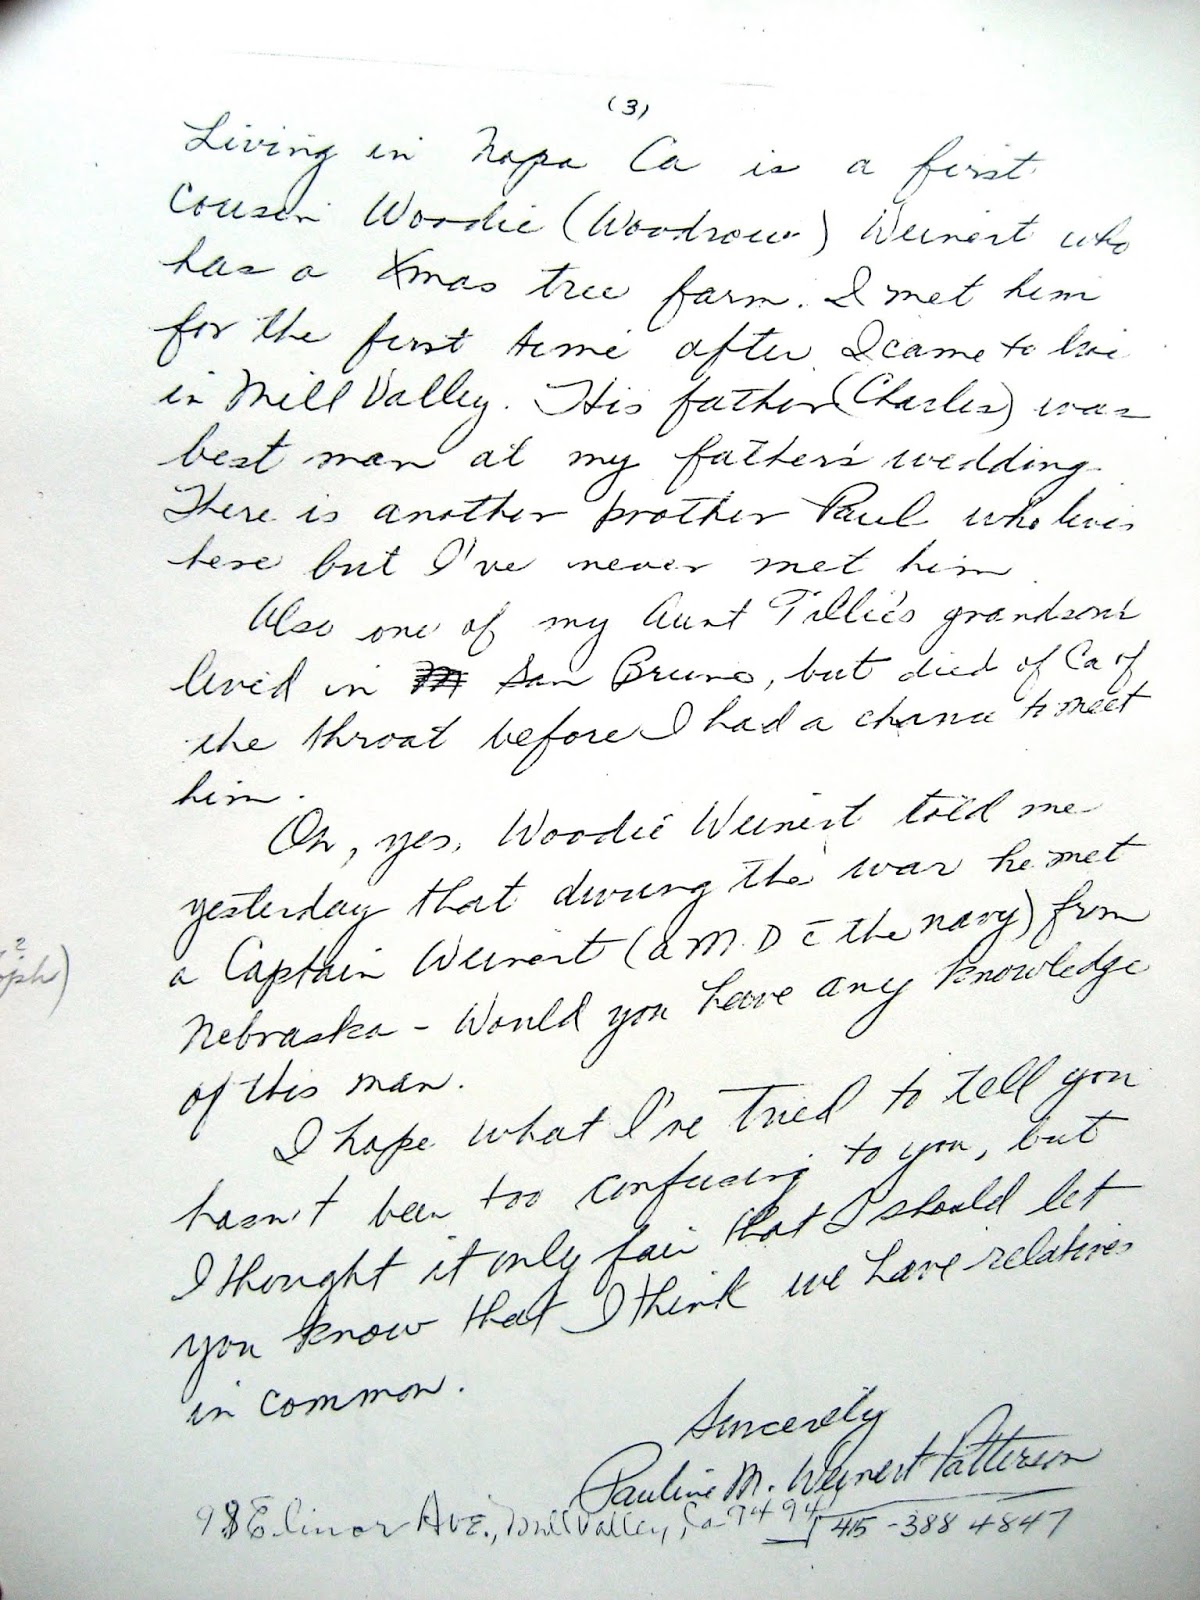 (3)
Living in Napa Ca is a first
cousin Woodie (Woodrow) Weinert who
has a Xmas tree farm. I met him
for the first time after I came to live
in Mill Valley. His father (Charles) was
best man at my father's wedding.
There is another brother Paul who lives
here but I've never met him.
Also one of my Aunt Tillie's grandsons
lived in San Bruno, but died of Ca of
the throat before I had a chance to meet
him.
Oh, yes, Woodie Weinert told me
yesterday that during the war he met
a Captain Weinert (a M.D c̄ the navy) from
Nebraska - Would you have any knowledge
of this man.
I hope what I've tried to tell you
hasn't been too confusing to you, but
I thought it only fair that I should let
you know that I think we have relatives
in common.
Sincerely
Pauline M. Weinert Patterson
Elinor Ave., Mill Valley, Ca 94941
415-388 4847